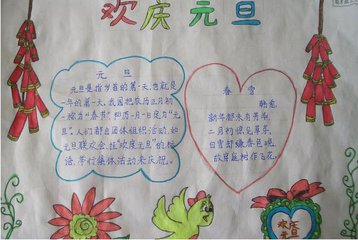 欢庆元旦
元 旦
元旦是指岁首的第一天,也就是
一年的第一天。我国把农历正月初
一称为"春节",把阳历一月一日定为"元
旦"。人们都会团体组织活动,如
元旦联欢会,挂"欢度元旦"的标
语,举行集体活动来庆祝。
春 雪
韩愈
新年都未有芳华,
二月初惊见草芽。
白雪却嫌春色晚,
故穿庭树作飞花。
欢度
元旦